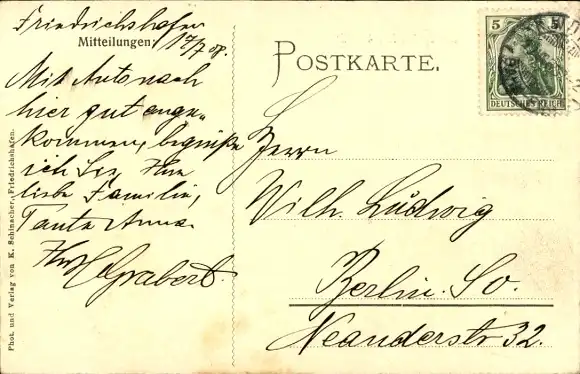 Friedrichshafen
Mitteilungen 17/7 08.
Mit Auto nach
hier gut ange-
kommen, begrüße
ich Sie, Ihre
liebe Familie,
Tante Anna.
Ihr Grabert.
POSTKARTE.
Herrn
Wilh. Lüdwig
Berlin. So.
Neanderstr 32.
5 5
DEUTSCHES REICH
Phot. und Verlag von K. Schinacher, Friedrichshafen.